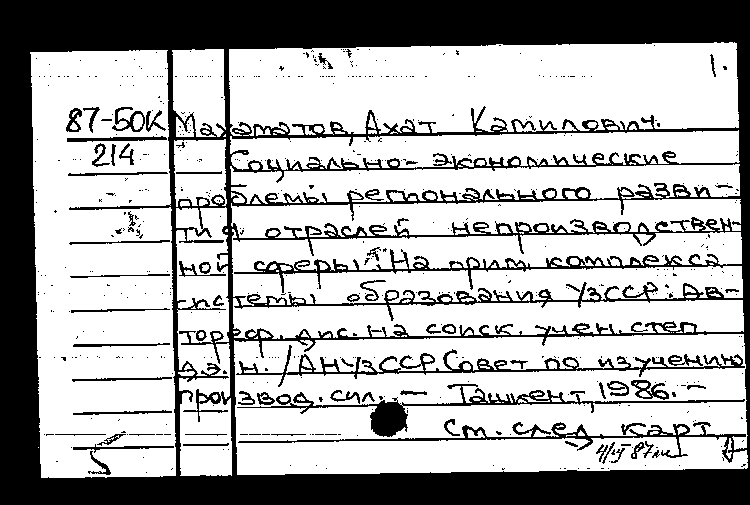 1.
87-50К Махаматов, Ахат Камилович.
214 Социально-экономические
проблемы регионального разви-
тия отраслей непроизводствен-
ной сферы: На прим. комплекса
системы образования УзССР: Ав-
тореф. дис. на соиск. учен. степ.
д.э.н. / АН УзССР. Совет по изучению
производ. сил. — Ташкент, 1986. —
См. след. карт.